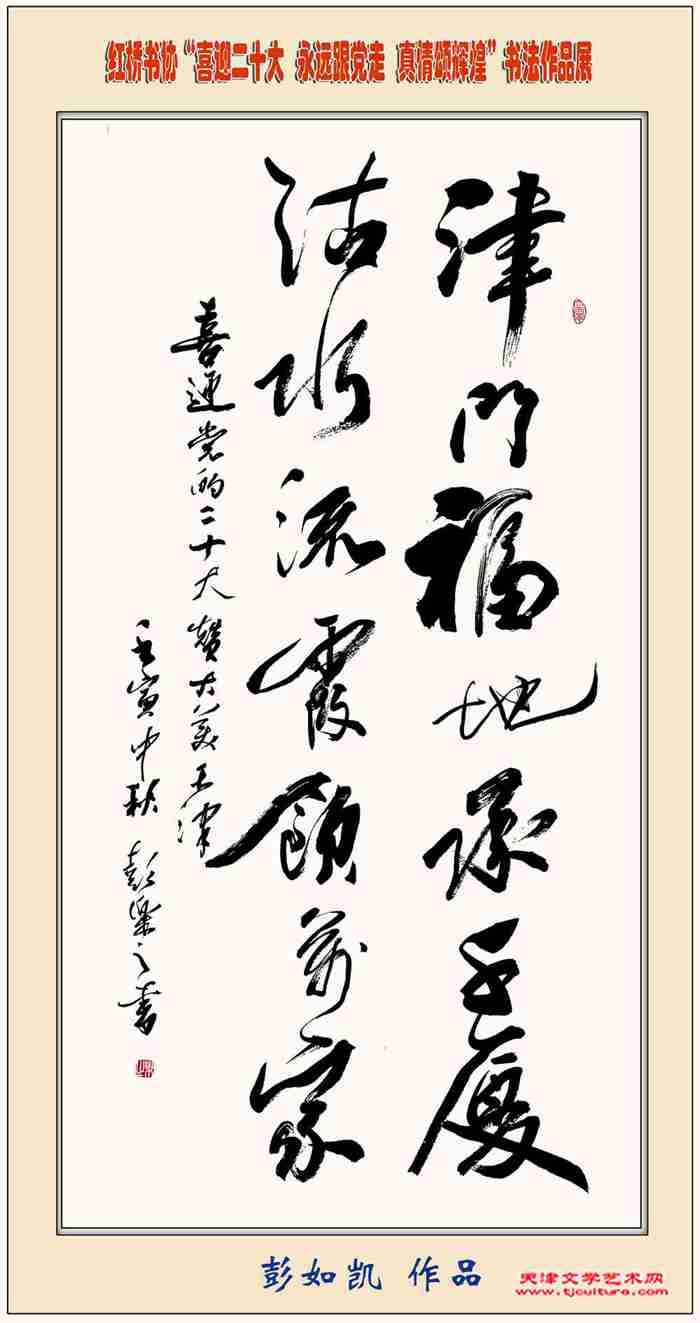 红桥书协“喜迎二十大 永远跟党走 真情颂辉煌”书法作品展
津門福地承千厦
沽水流霞領萬家
喜迎党的二十大 赞大美天津
壬寅中秋 彭樂之書
彭如凯 作品
天津文学艺术网
www.tjculture.com